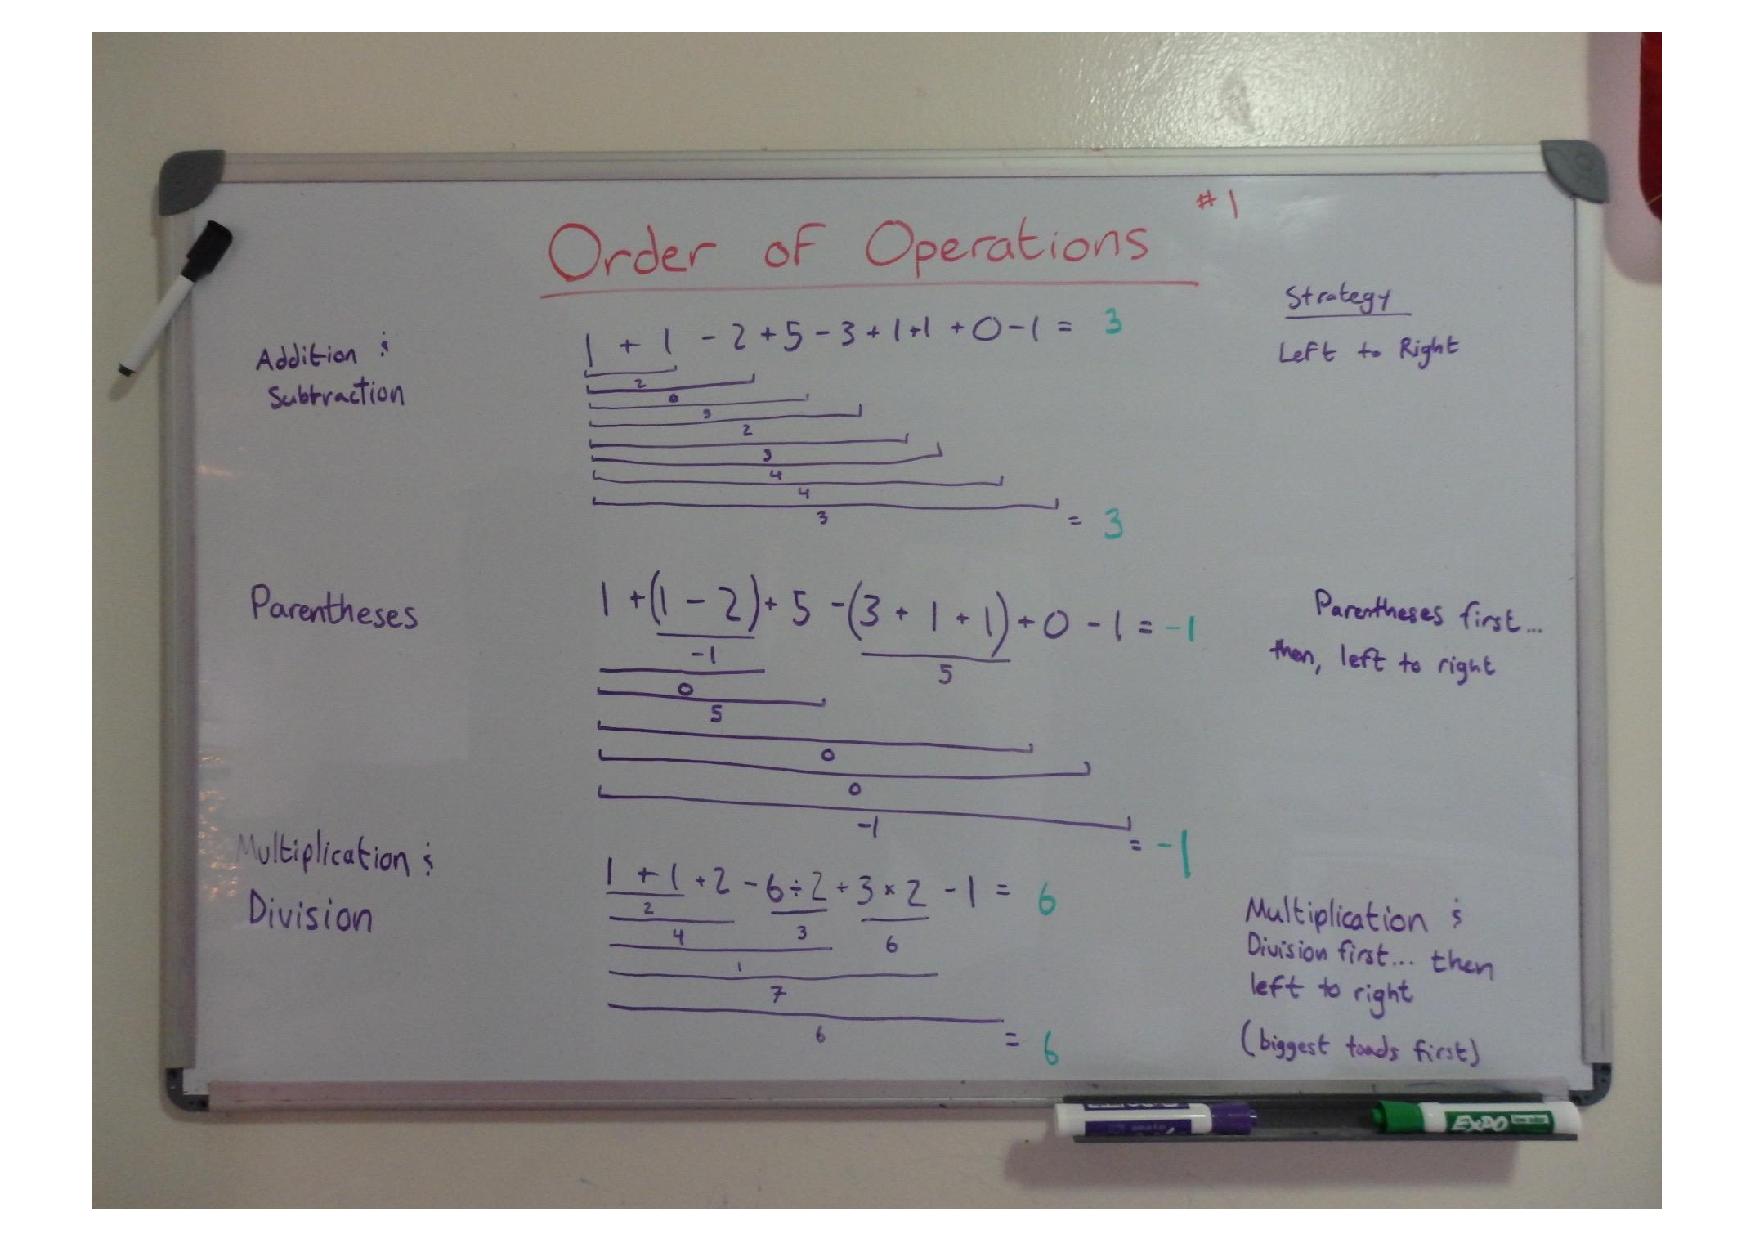 #1
Order of Operations
Strategy
Addition &
Subtraction
1 + 1 - 2 + 5 - 3 + 1 + 1 + 0 - 1 = 3
Left to Right
2
0
5
2
3
4
4
3
= 3
Parentheses
1 + (1 - 2) + 5 - (3 + 1 + 1) + 0 - 1 = -1
Parentheses first...
then, left to right
-1
5
0
5
0
0
-1
= -1
Multiplication &
Division
1 + 1 + 2 - 6 ÷ 2 + 3 × 2 - 1 = 6
2
4
3
6
1
7
6
= 6
Multiplication &
Division first... then
left to right
(biggest toads first)
EXPO